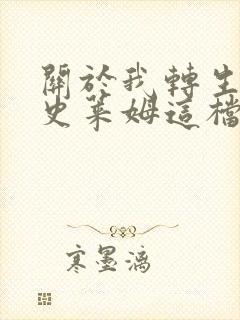 關於我轉生
史萊姆這檔
寒墨漓